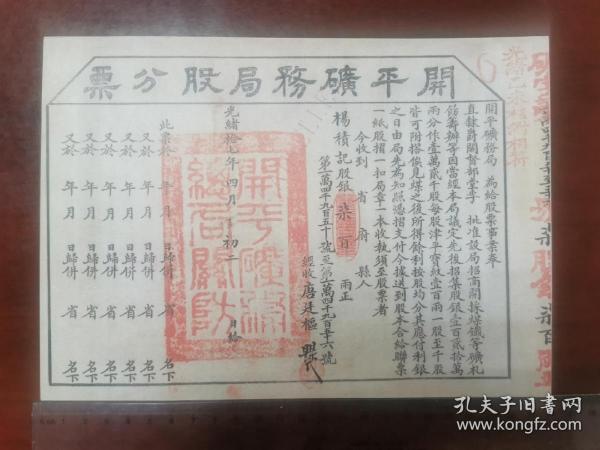 開平礦務局股分票
開平礦務局 為給股票事案奉
直隸爵閣督部堂李 批准設局招商開採煤鐵等礦札
飭籌辦等因當經本局議定先後招集股銀壹百貳拾萬
兩分作壹萬貳千股每股津平寶紋壹百兩一股至千股
皆可附搭俟見煤之後所得餘利按股均分其應付利銀
之日由局先為知照憑摺支付今據送到股本合給聯票
一紙股摺一扣局章一本收執須至股票者
今收到 省 府 縣人
楊積記股銀柒百 兩正
第一萬四千九百五十號至第一萬四千九百五十六號
經收唐廷樞
光緒拾七年四月 初二 日給
開平礦務總局關防
此票於 年 月 日歸併 省 名下
又於 年 月 日歸併 省 名下
又於 年 月 日歸併 省 名下
又於 年 月 日歸併 省 名下
又於 年 月 日歸併 省 名下
又於 年 月 日歸併 省 名下
孔夫子旧书网
www.kongfz.com